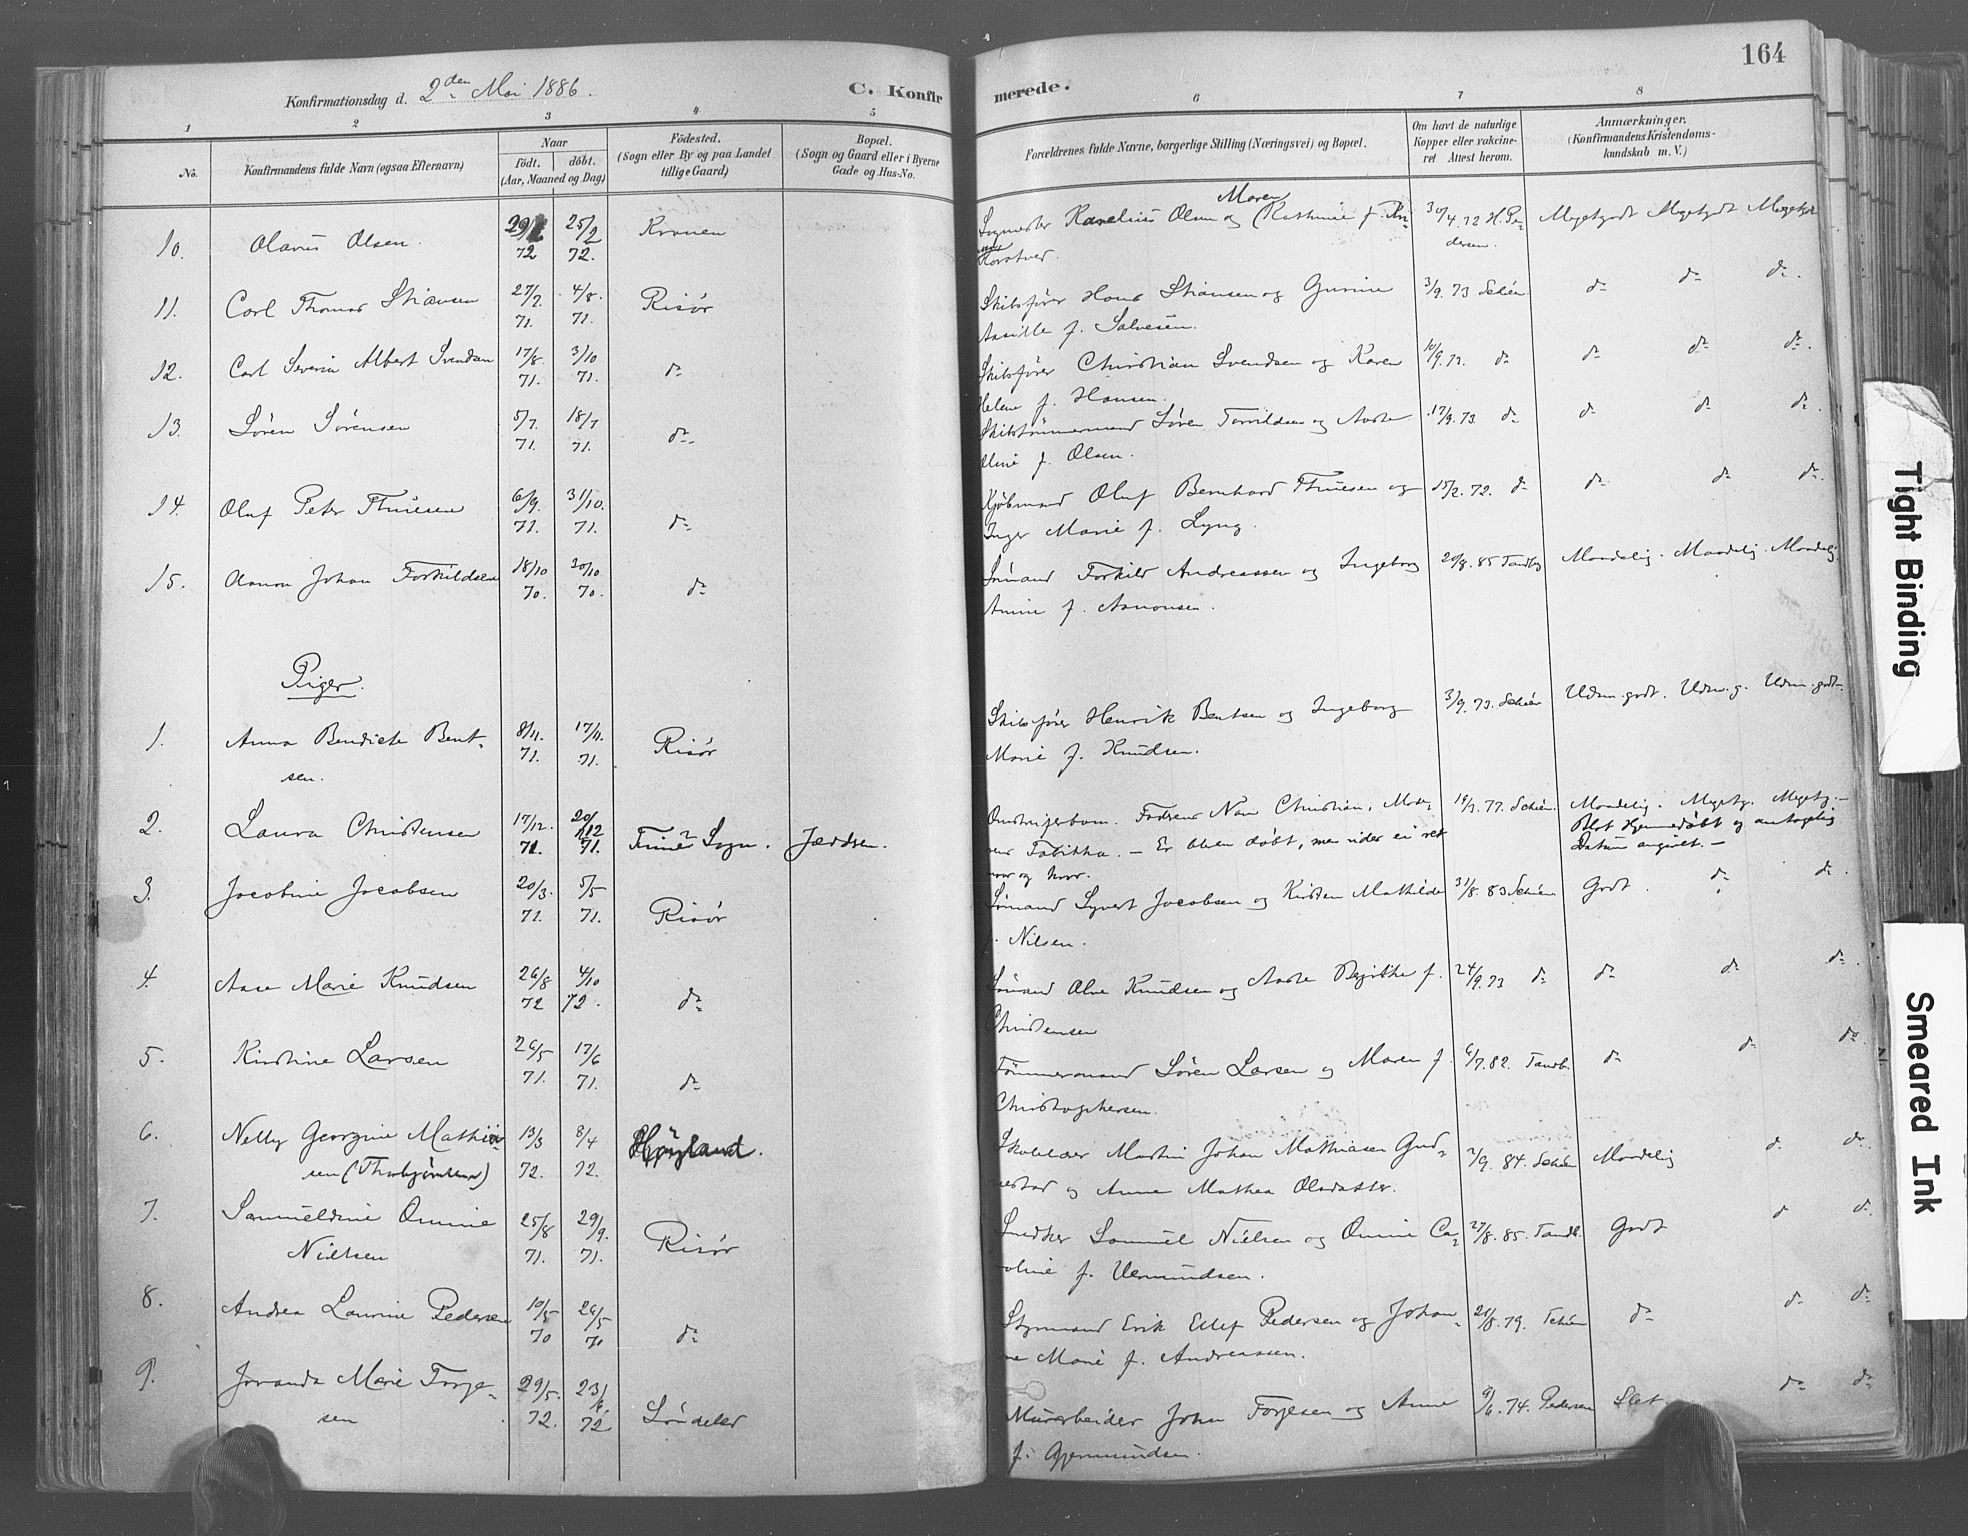 164
Konfirmationsdag d. 2den Mai 1886.
C. Konfirmerede.
1 2 3 4 5 6 7 8
No.
Konfirmandens fulde Navn (ogsaa Efternavn)
Naar
födt. döbt.
(Aar, Maaned og Dag)
Födested.
(Sogn eller By og paa Landet
tillige Gaard)
Bopæl.
(Sogn og Gaard eller i Byerne
Gade og Hus-No.
Forældrenes fulde Navne, borgerlige Stilling (Næringsvei) og Bopæl.
Om havt de naturlige
Kopper eller vakcine-
ret Attest herom.
Anmærkninger.
(Konfirmandens Kristendoms-
kundskab m. V.)
10. Olavus Olsen. 72 25/2 72. Kranen Olsen og Maren Megetgodt Megetgodt Megetgodt
11. Carl Thomas Stiansen 27/7 71. 4/8. 71. Risör Skibsfører Hans Stiansen og Gurine
f. Salvesen. 3/9. 73 Schiøn d- d- d-
12. Carl Severin Albert Svendsen 17/8 71. 3/10 71. d- Skibsfører Christian Svendsen og Karen
Helene f. Hansen. 10/9. 73. d- d- d- d-
13. Søren Sørensen 5/7. 71. 18/7 71. d- Skibstømmermand Søren Torrildsen og Aaste
Oline f. Olsen. 17/9. 73. d- d- d- d-
14. Oluf Peter Thuesen 6/9. 71. 31/10. 71. d- Kjøbmand Oluf Bernhard Thuesen og
Inger Marie f. Lyng. 15/2. 72. d- d- d- d-
15. Aanon Johan Torkildsen 18/10 70. 30/10 70. d- Sømand Torkild Andreassen og Ingeborg
Anne f. Aanonsen. 20/8. 85 Tandbg Maadelig. Maadelig. Maadelig
Piger.
1. Anna Bendicte Bent-
sen. 8/11. 71. 17/11. 71. Risør Skibsfører Henrik Bentsen og Ingeborg
Marie f. Knudsen. 3/9. 73. Schiøn Udm. godt. Udm. g. Udm. godt.
2. Laura Christensen 17/12. 71. 20/12 71. Sogn. Christian, Mode-
rens Tabitha. - Er bleven døbt, men vides ei ret
naar og hvor. 77. Schiøn. Maadelig. Megetg. Megetg.-
Blot hjemmedøbt og antagelig
Datum angivet. -
3. Jacobine Jacobsen 20/3. 71. 5/5 71. Risør Sømand Syvert Jacobsen og Kirsten Mathilde
f. Nilsen. 31/8. 83 Schiøn Godt. d- d-
4. Aase Marie Knudsen 26/8 72 4/10 72. d- Sømand Alve Knudsen og Aaste Birgithe f.
Christensen 24/9. 73 d- d- d- d-
5. Kirstine Larsen 26/5 71. 17/6 71. d- Tømmermand Søren Larsen og Maren f.
Christophersen. 6/7. 82. Tandb. d- d- d-
6. Nelly Georgine Mathia-
sen (Thorbjørnsen) 13/3 72. 8/4 72. Højland. Skolelærer Martin Johan Mathiasen Gud-
nestad og Anne Mathea Olsdatter. 2/9. 84. Schiøn Maadelig d- d-
7. Samueldine Omine
Nielsen 25/8 71. 29/9. 71. Risør Snedker Samuel Nielsen og Omine Ca-
roline f. Vermundsen. 27/8. 85. Tandb. Godt d- d-
8. Andrea Laurine Pedersen 10/5 70 26/5 70 d- Styrmand Erik Ellef Pedersen og Johan-
ne Marie f. Andreassen. 21/8. 79. Schiøn d- d- d-
9. Jovanda Marie Torje-
sen 29/5. 72. 23/6. 72 Søndeled Murarbeider John Torjesen og Anne
f. Gjermundsen. 9/6. 74. Pedersen Slet. d- d-
Tight Binding
Smeared Ink